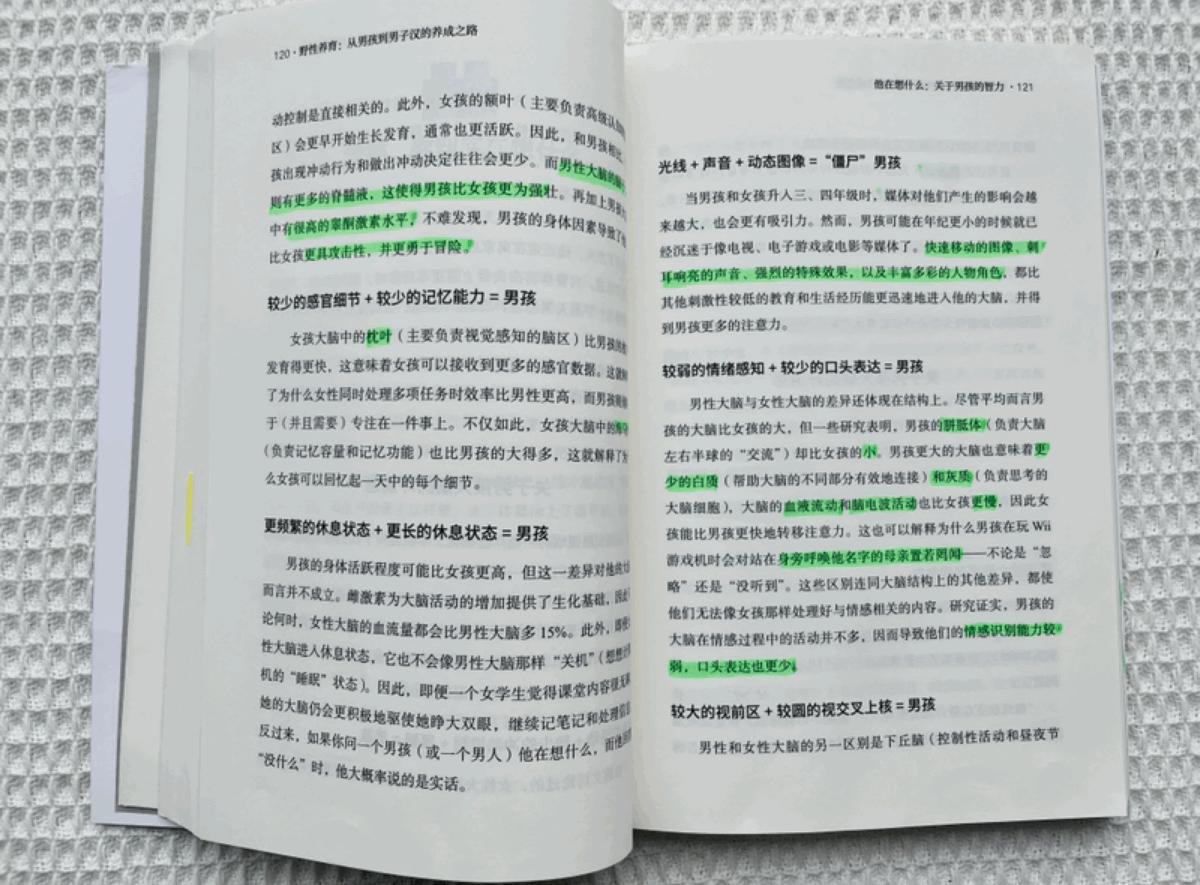 120 · 野性养育：从男孩到男子汉的养成之路
动控制是直接相关的。此外，女孩的额叶（主要负责高级认知的
区）会更早开始生长发育，通常也更活跃。因此，和男孩相比，
孩出现冲动行为和做出冲动决定往往会更少。而男性大脑的
则有更多的脊髓液，这使得男孩比女孩更为强壮。再加上男孩
中有很高的睾酮激素水平，不难发现，男孩的身体因素导致了他
比女孩更具攻击性，并更勇于冒险。
较少的感官细节 + 较少的记忆能力 = 男孩
女孩大脑中的枕叶（主要负责视觉感知的脑区）比男孩的
发育得更快，这意味着女孩可以接收到更多的感官数据。这就解
了为什么女性同时处理多项任务时效率比男性更高，而男孩则
于（并且需要）专注在一件事上。不仅如此，女孩大脑中的海
（负责记忆容量和记忆功能）也比男孩的大得多，这就解释了为
么女孩可以回忆起一天中的每个细节。
更频繁的休息状态 + 更长的休息状态 = 男孩
男孩的身体活跃程度可能比女孩更高，但这一差异对他的大
而言并不成立。雌激素为大脑活动的增加提供了生化基础，因此
论何时，女性大脑的血流量都会比男性大脑多 15%。此外，即使
性大脑进入休息状态，它也不会像男性大脑那样“关机”（想想计
机的“睡眠”状态）。因此，即便一个女学生觉得课堂内容很无
她的大脑仍会更积极地驱使她睁大双眼，继续记笔记和处理信息
反过来，如果你问一个男孩（或一个男人）他在想什么，而他
“没什么”时，他大概率说的是实话。
他在想什么：关于男孩的智力 · 121
光线 + 声音 + 动态图像 = “僵尸”男孩
当男孩和女孩升入三、四年级时，媒体对他们产生的影响会越
来越大，也会更有吸引力。然而，男孩可能在年纪更小的时候就已
经沉迷于像电视、电子游戏或电影等媒体了。快速移动的图像、刺
耳响亮的声音、强烈的特殊效果，以及丰富多彩的人物角色，都比
其他刺激性较低的教育和生活经历能更迅速地进入他的大脑，并得
到男孩更多的注意力。
较弱的情绪感知 + 较少的口头表达 = 男孩
男性大脑与女性大脑的差异还体现在结构上。尽管平均而言男
孩的大脑比女孩的大，但一些研究表明，男孩的胼胝体（负责大脑
左右半球的“交流”）却比女孩的小。男孩更大的大脑也意味着更
少的白质（帮助大脑的不同部分有效地连接）和灰质（负责思考的
大脑细胞），大脑的血液流动和脑电波活动也比女孩更慢，因此女
孩能比男孩更快地转移注意力。这也可以解释为什么男孩在玩 Wii
游戏机时会对站在身旁呼唤他名字的母亲置若罔闻——不论是“忽
略”还是“没听到”。这些区别连同大脑结构上的其他差异，都使
他们无法像女孩那样处理好与情感相关的内容。研究证实，男孩的
大脑在情感过程中的活动并不多，因而导致他们的情感识别能力较
弱，口头表达也更少。
较大的视前区 + 较圆的视交叉上核 = 男孩
男性和女性大脑的另一区别是下丘脑（控制性活动和昼夜节